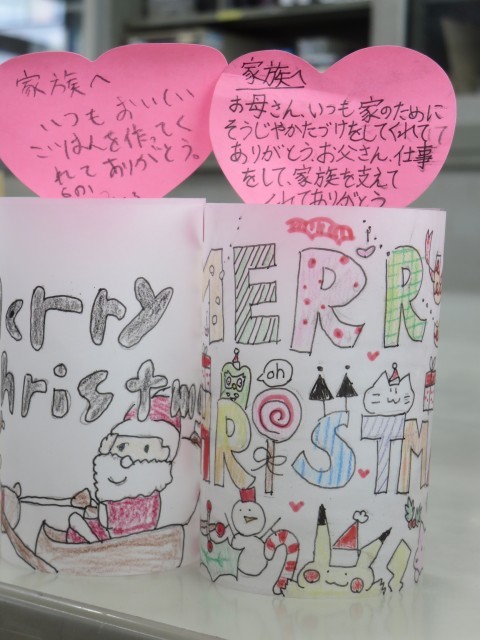 家族へ
いつもおいしい
ごはんを作ってく
れてありがとう。
家族へ
お母さん、いつも家のために
そうじやかたづけをしてくれて
ありがとう。お父さん、仕事
をして、家族を支えて
くれてありがとう
erry
hristm
MERR
oh
RISTM